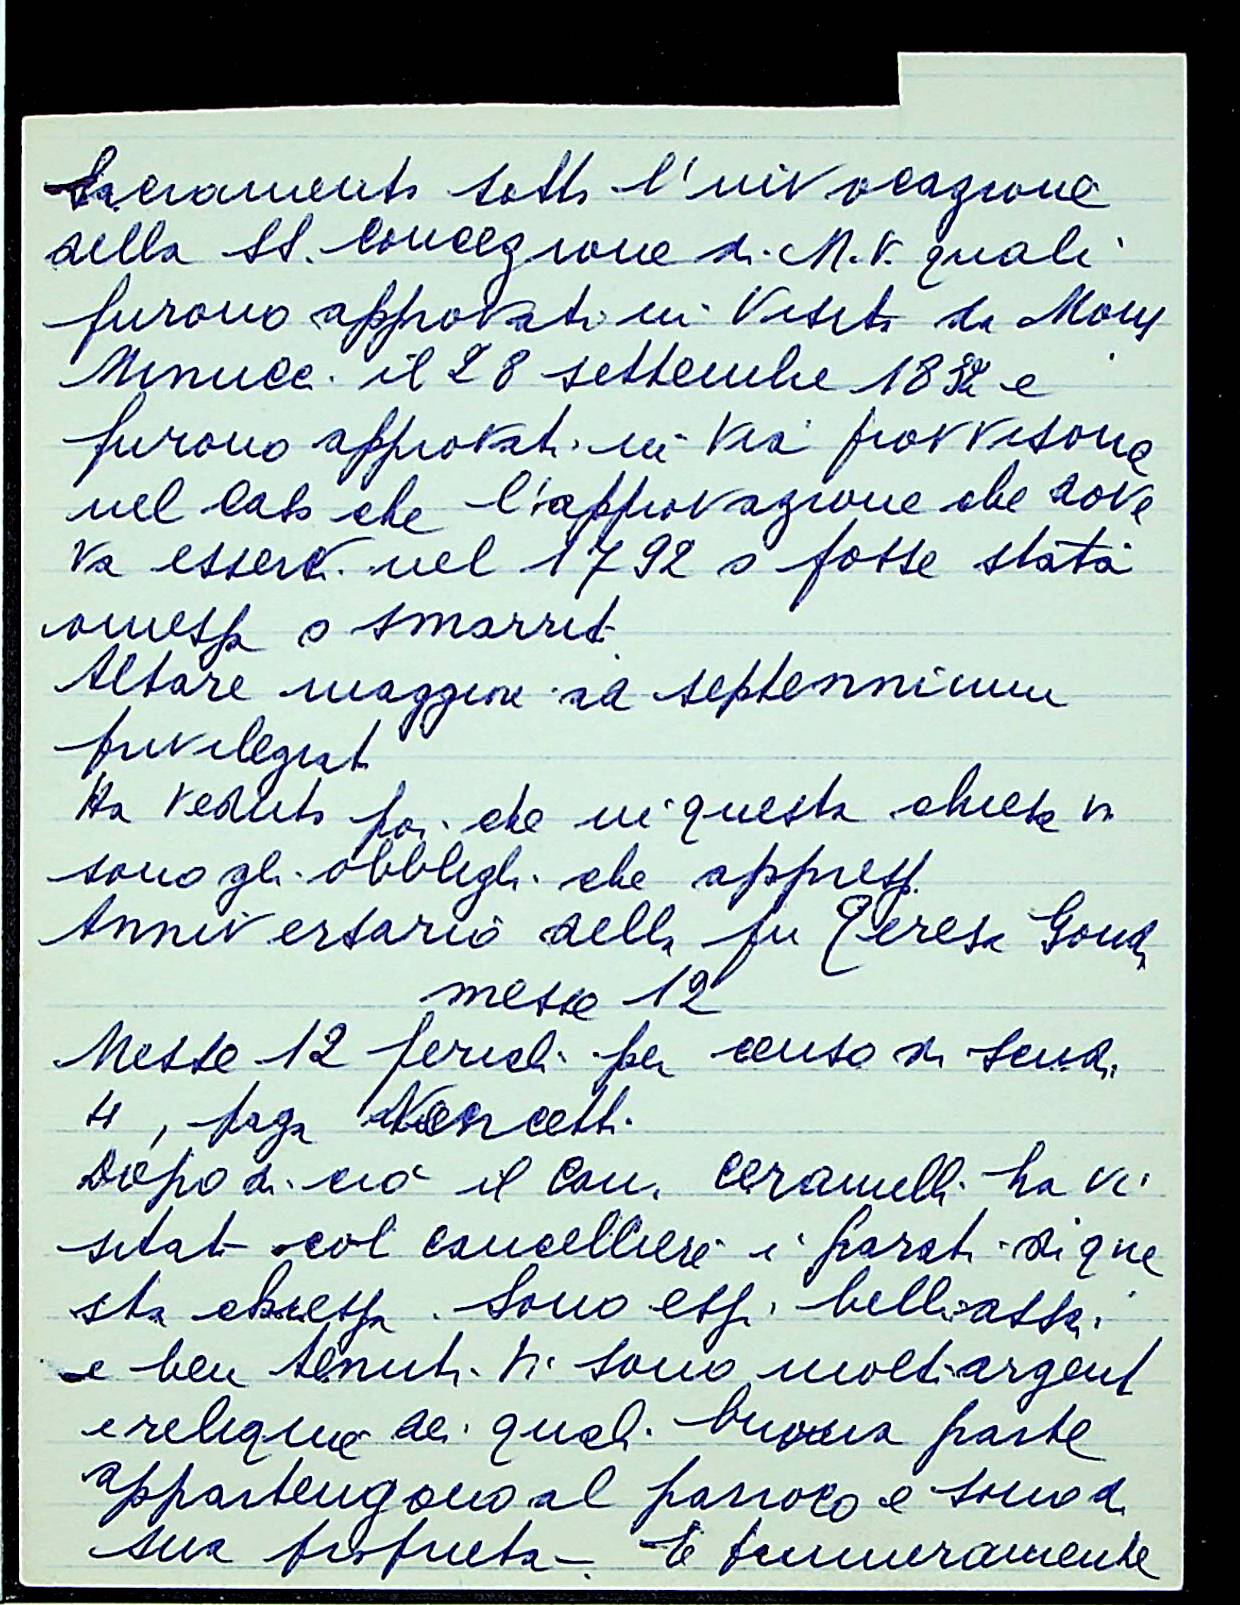 Sacramento sotto l'invocazione
della SS. Concezione di M.V. quali
furono approvati in Visita da Mons
Minucci il 28 settembre 1832 e
furono approvati in via provvisoria
nel caso che l'approvazione che dove
va essere nel 1792 o fosse stata
omessa o smarrita
Altare maggiore ad septennium
privilegiato
Ha veduto poi che in questa chiesa vi
sono gli obblighi che appresso
Anniversario della fu Teresa Gondi
messe 12
Messe 12 feriali per censo di scudi
4, paga
Dopo di ciò il Can. Ceramelli ha vi
sitato col cancelliere i parati di que
sta chiesa. Sono essi belli assai
e ben tenuti. Vi sono molti argenti
e reliquie dei quali buona parte
appartengono al parroco e sono di
sua proprietà. E